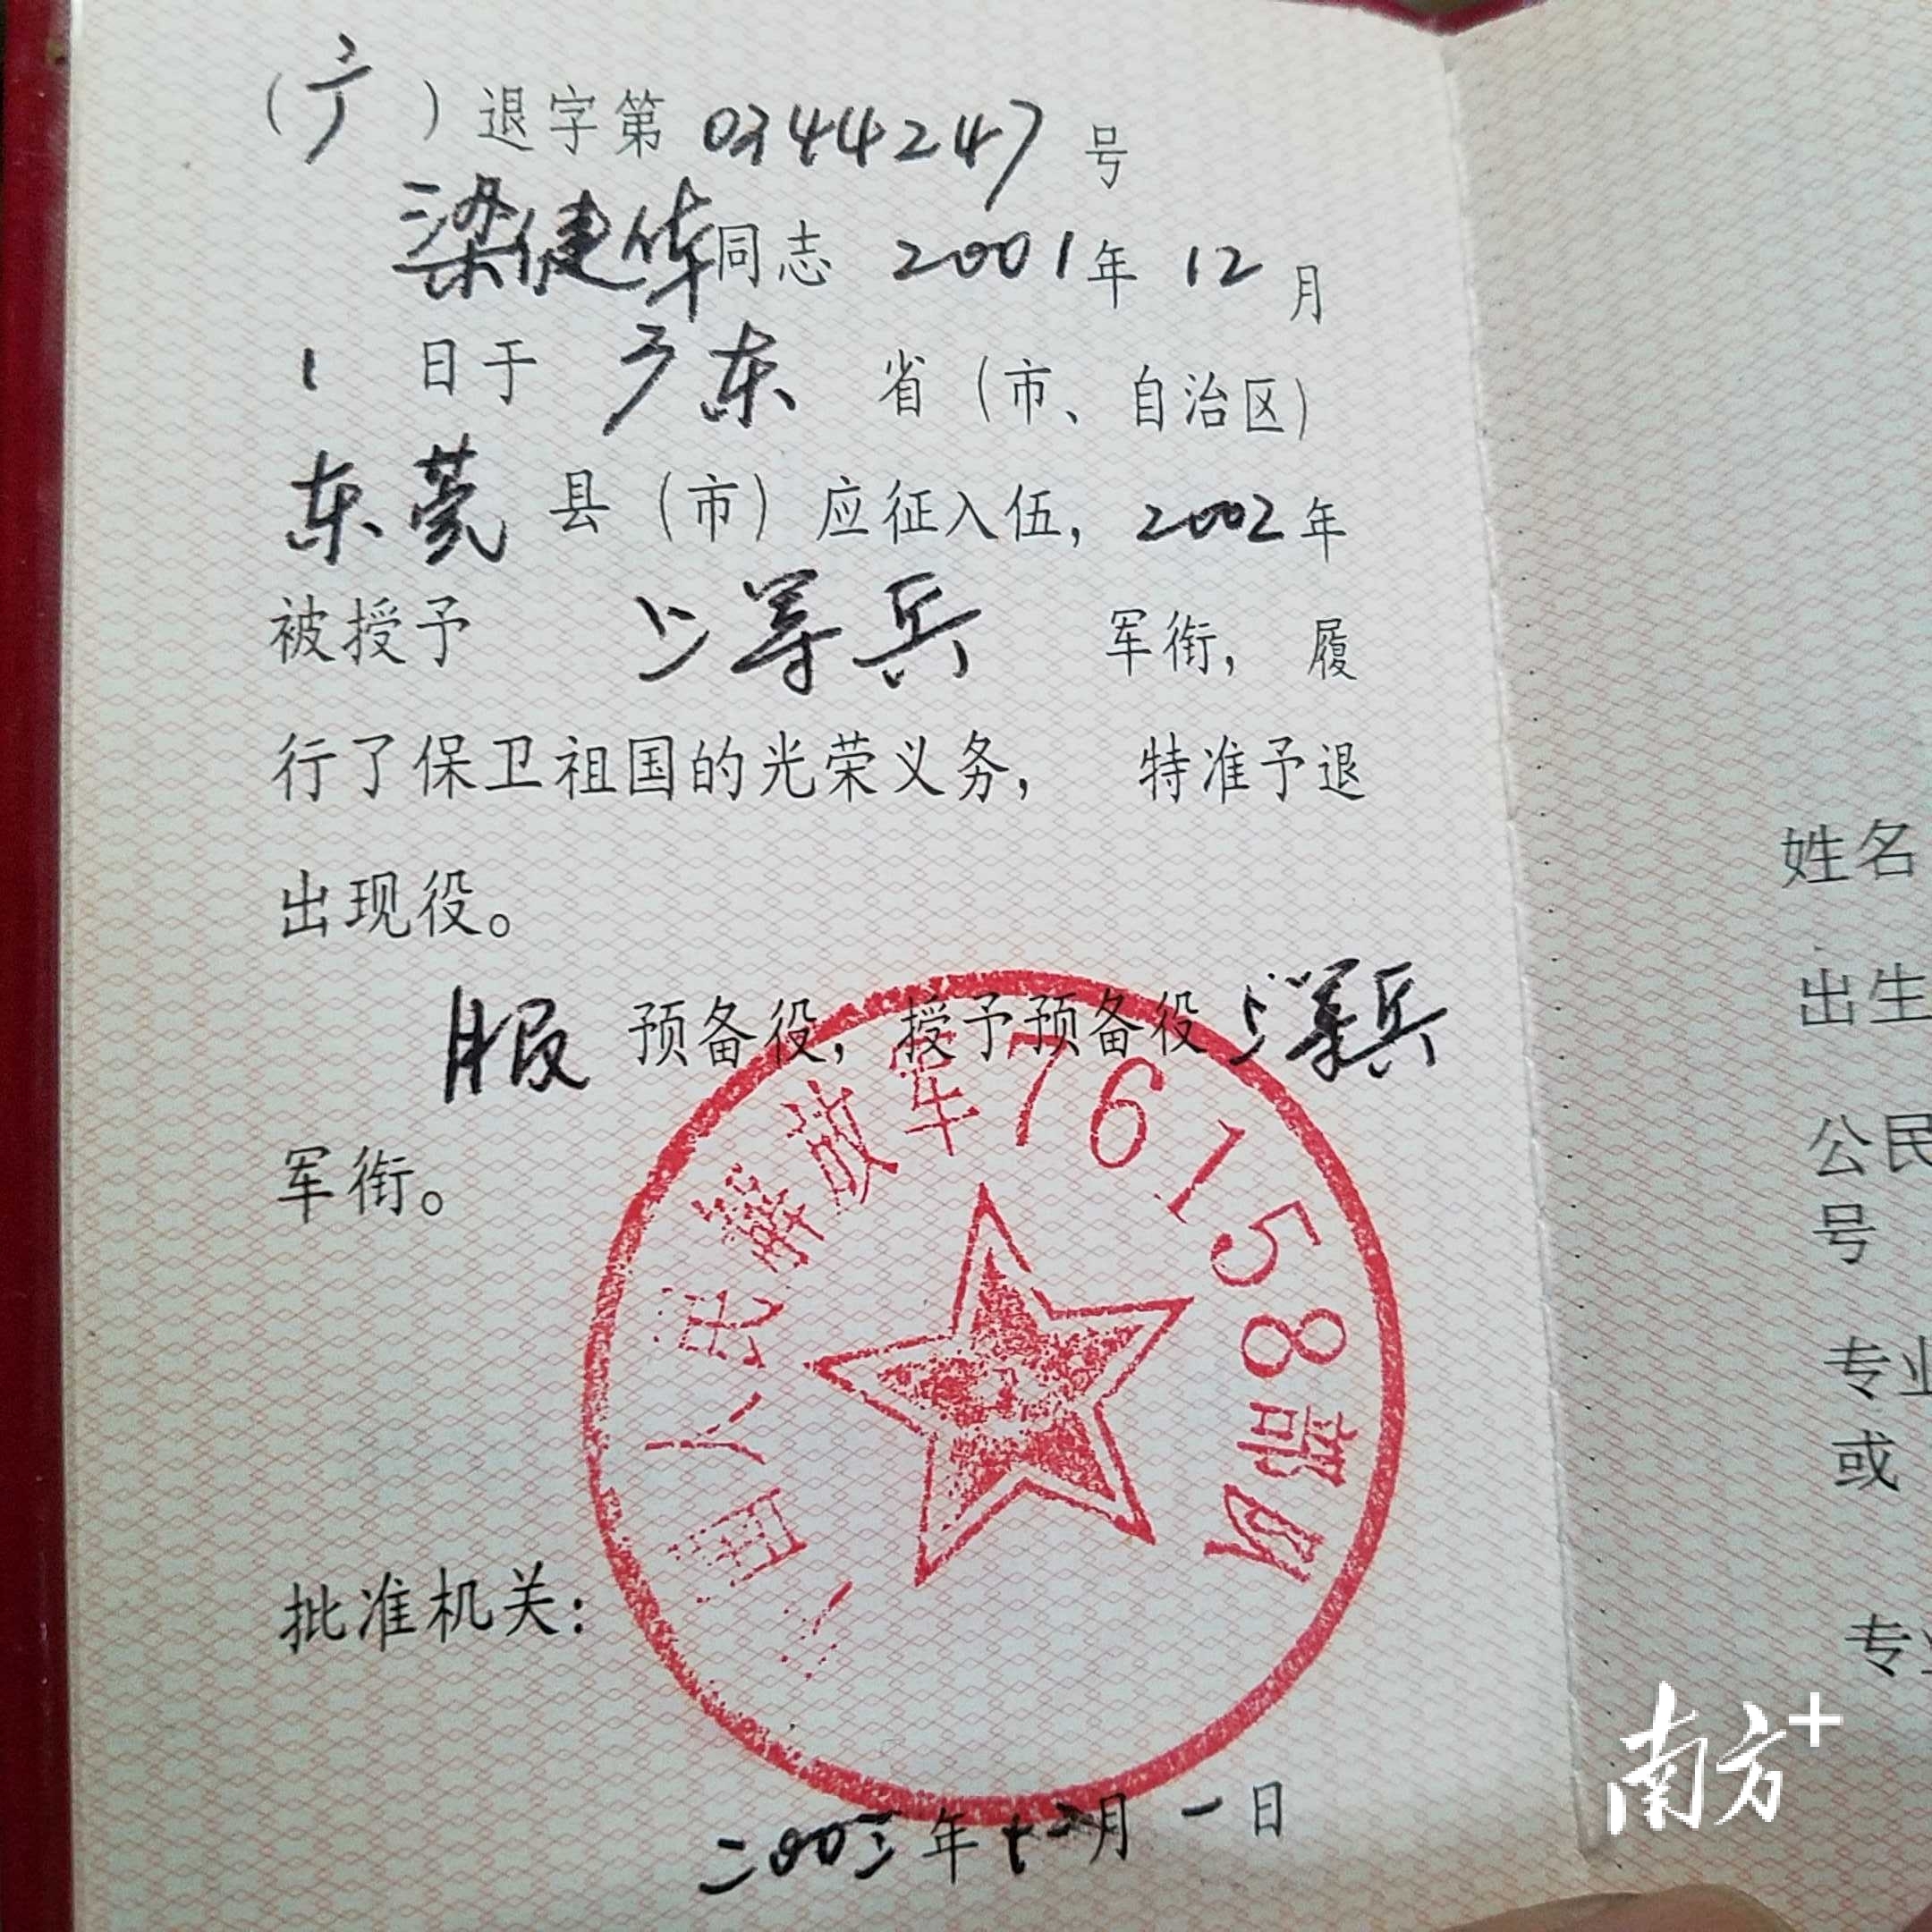 （广）退字第 0344247 号
梁健华同志 2001年 12 月
1 日于 广东 省（市、自治区）
东莞 县（市）应征入伍，2002年
被授予 上等兵 军衔， 履
行了保卫祖国的光荣义务， 特准予退
出现役。
服 预备役，授予预备役 上等兵
军衔。
国人民解放军76158部队
批准机关：
二00三年十二月一日
姓名
出生
公民
号
专业
或
专业
南方+